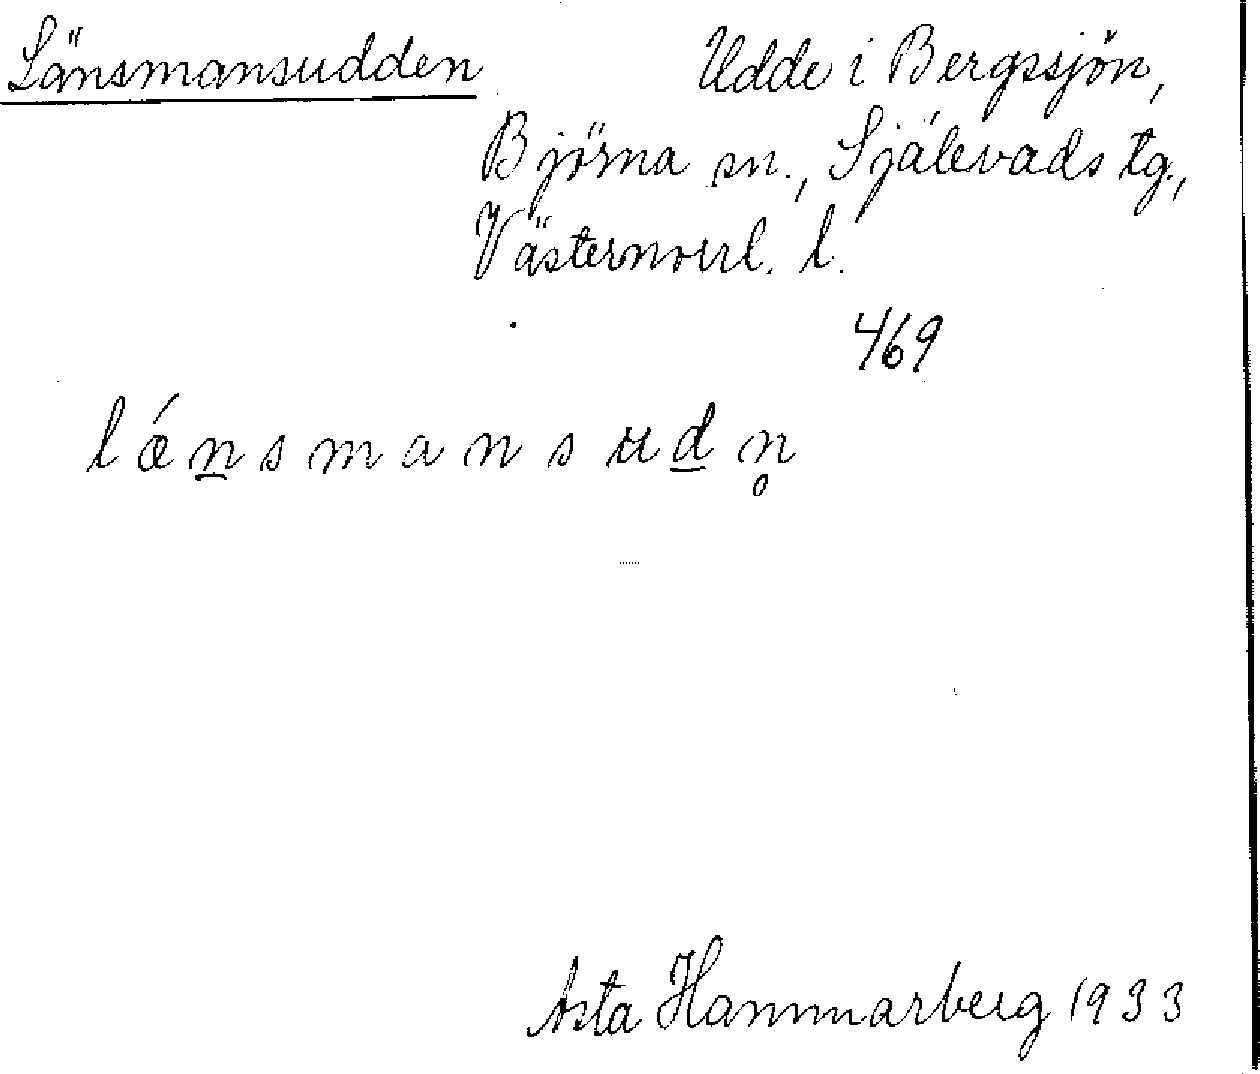 Länsmansudden Udde i Bergssjön,
Björna sn., Själevads tg.,
Västernorrl. l.
469
lǽn̲smansud̲n̥
Asta Hammarberg 1933